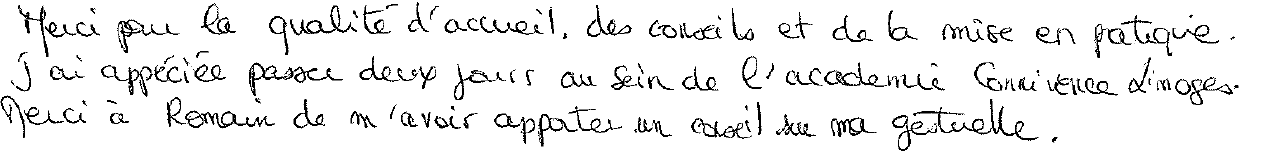 Merci pour la qualité d'accueil, des conseils et de la mise en patique.
J'ai appéciée passer deux jours au sein de l'academie Connivence Limoges.
Merci à Romain de m'avoir apporter un conseil sur ma gestuelle.